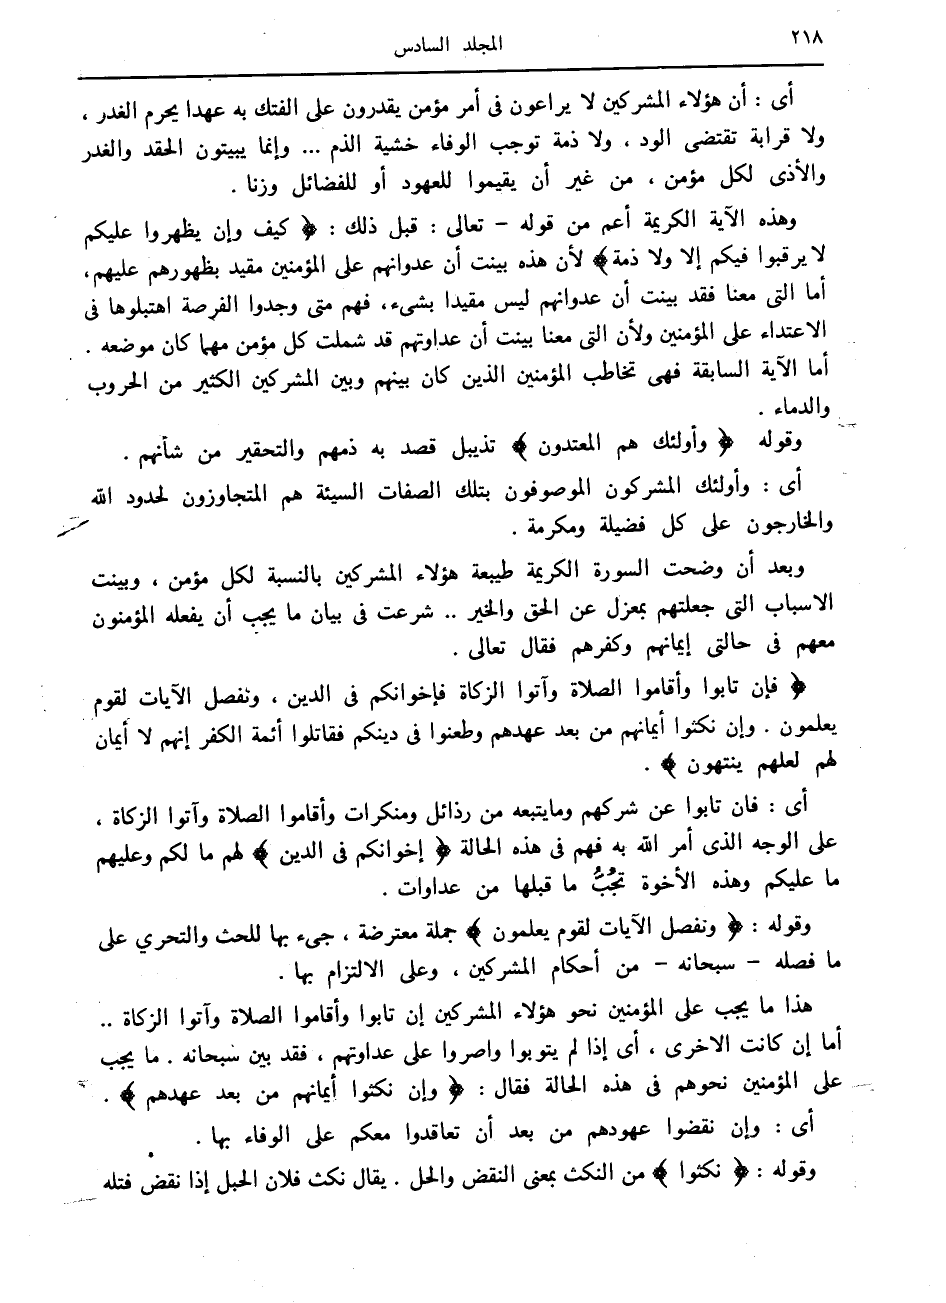 ٢١٨
المجلد السادس
أى : أن هؤلاء المشركين لا يراعون فى أمر مؤمن يقدرون على الفتك به عهدا يحرم الغدر ،
ولا قرابة تقتضى الود ، ولا ذمة توجب الوفاء خشية الذم ... وإنما يبيتون الحقد والغدر
والأذى لكل مؤمن ، من غير أن يقيموا للعهود أو للفضائل وزنا .
وهذه الآية الكريمة أعم من قوله - تعالى : قبل ذلك : ﴿ كيف وإن يظهروا عليكم
لا يرقبوا فيكم إلا ولا ذمة ﴾ لأن هذه بينت أن عدوانهم على المؤمنين مقيد بظهورهم عليهم،
أما التى معنا فقد بينت أن عدوانهم ليس مقيدا بشىء، فهم متى وجدوا الفرصة اهتبلوها فى
الاعتداء على المؤمنين ولأن التى معنا بينت أن عداوتهم قد شملت كل مؤمن مهما كان موضعه .
أما الآية السابقة فهى تخاطب المؤمنين الذين كان بينهم وبين المشركين الكثير من الحروب
والدماء .
وقوله ﴿ وأولئك هم المعتدون ﴾ تذييل قصد به ذمهم والتحقير من شأنهم .
أى : وأولئك المشركون الموصوفون بتلك الصفات السيئة هم المتجاوزون لحدود الله
والخارجون على كل فضيلة ومكرمة .
وبعد أن وضحت السورة الكريمة طيبعة هؤلاء المشركين بالنسبة لكل مؤمن ، وبينت
الاسباب التى جعلتهم بمعزل عن الحق والخير .. شرعت فى بيان ما يجب أن يفعله المؤمنون
معهم فى حالتى إيمانهم وكفرهم فقال تعالى .
﴿ فإن تابوا وأقاموا الصلاة وآتوا الزكاة فإخوانكم فى الدين ، ونفصل الآيات لقوم
يعلمون . وإن نكثوا أيمانهم من بعد عهدهم وطعنوا فى دينكم فقاتلوا أئمة الكفر إنهم لا أيمان
لهم لعلهم ينتهون ﴾ .
أى : فان تابوا عن شركهم ومايتبعه من رذائل ومنكرات وأقاموا الصلاة وآتوا الزكاة ،
على الوجه الذى أمر الله به فهم فى هذه الحالة ﴿ إخوانكم فى الدين ﴾ لهم ما لكم وعليهم
ما عليكم وهذه الأخوة تَجُبُّ ما قبلها من عداوات .
وقوله : ﴿ ونفصل الآيات لقوم يعلمون ﴾ جملة معترضة ، جىء بها للحث والتحري على
ما فصله - سبحانه - من أحكام المشركين ، وعلى الالتزام بها .
هذا ما يجب على المؤمنين نحو هؤلاء المشركين إن تابوا وأقاموا الصلاة وآتوا الزكاة ..
أما إن كانت الاخرى ، أى إذا لم يتوبوا واصروا على عداوتهم ، فقد بين سبحانه . ما يجب
على المؤمنين نحوهم فى هذه الحالة فقال : ﴿ وإن نكثوا أيمانهم من بعد عهدهم ﴾ .
أى : وإن نقضوا عهودهم من بعد أن تعاقدوا معكم على الوفاء بها .
وقوله : ﴿ نكثوا ﴾ من النكث بمعنى النقض والحل . يقال نكث فلان الحبل إذا نقض فتله